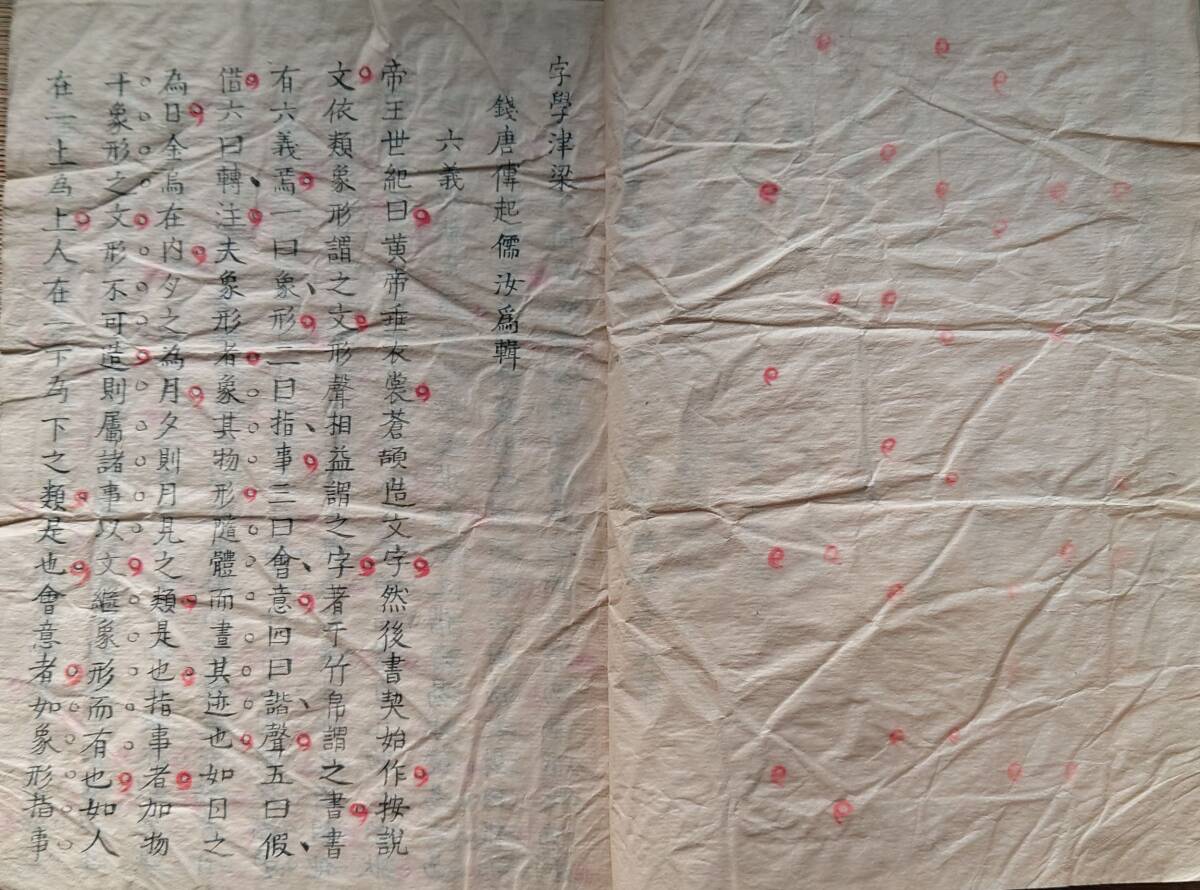 字學津梁
錢唐傅起儒汝爲輯
六義
帝王世紀曰黃帝垂衣裳蒼頡造文字然後書契始作按說
文依類象形謂之文形聲相益謂之字著于竹帛謂之書書
有六義焉一曰象形二曰指事三曰會意四曰諧聲五曰假
借六曰轉注夫象形者象其物形隨體而畫其迹也如日之
為日金烏在內夕之為月夕則月見之類是也指事者加物
于象形之文形不可造則屬諸事以文繼象形而有也如人
在一上為上人在一下為下之類是也會意者如象形指事